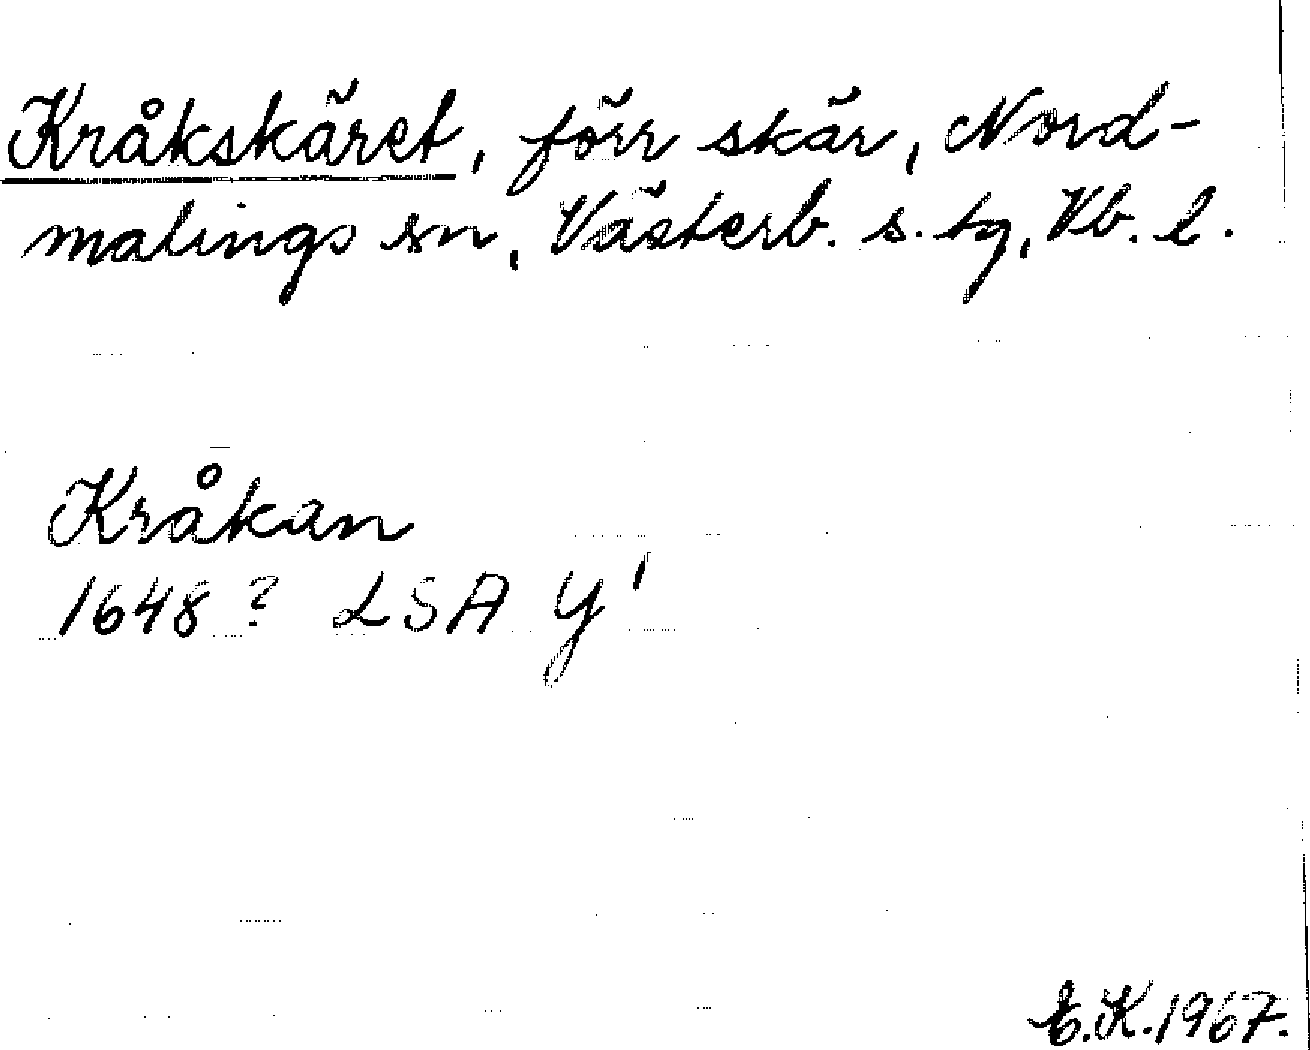 Kråkskäret, förr skär, Nord-
malings sn, Västerb. s. tg, Vb. l.
Kråkan
1648? LSA Y¹
E.K. 1967.